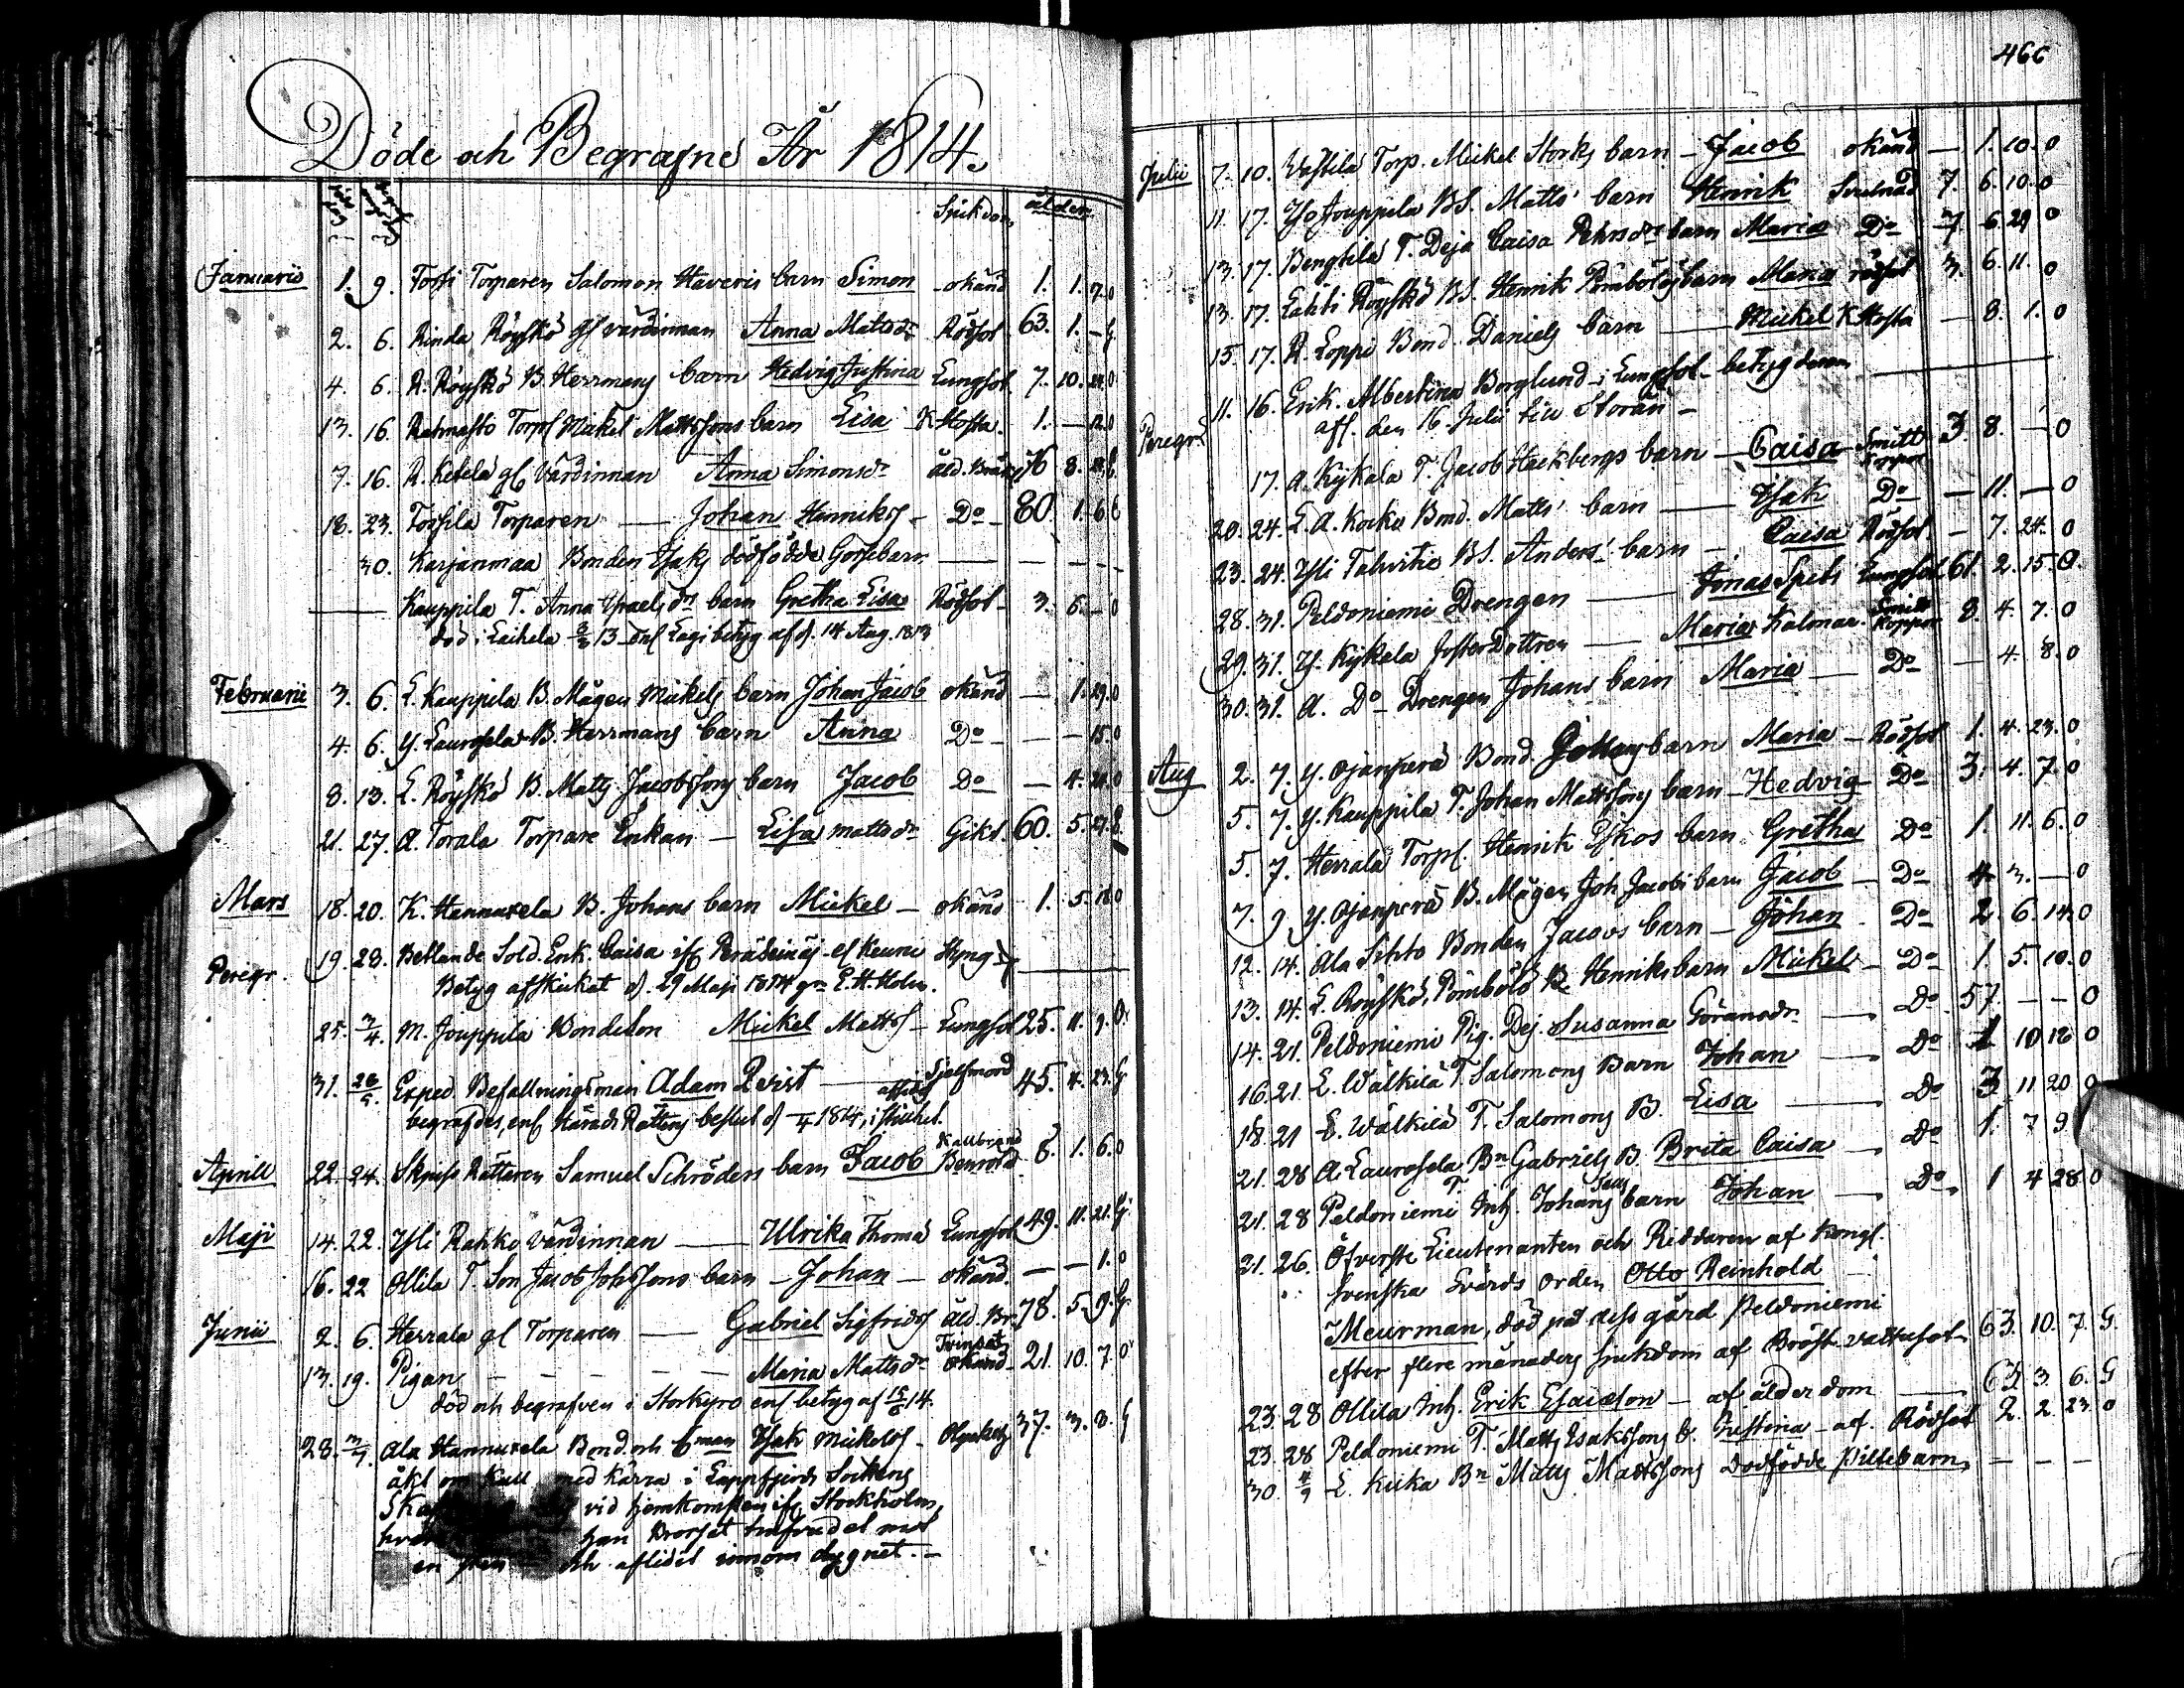 Döde och Begrafne År 1814.
Sjukdom ålder
Januarii 1. 9. Torpparen Salomon Haveris barn Simon okänd 1. 1. 7. 0
2. 6. Rinda Röyskö gl värdinnan Anna Mattsdr Rödsot 63. 1. – G
4. 6. R. Röyskö B. Herrmans barn Hedvig Justina Lungsot 7. 10. 0
13. 16. Torp. Mickel Mattssons barn Lisa K Hosta 1. – 12. 0
7. 16. R. Ketela gl Värdinnan Anna Simonsdr åld. Bräck. 76 8.
18. 23. Torpparen — Johan Henrikss – Do 80 1. 6
30. Karjanmaa Bonden Isaks dödfödde Gossebarn — — —
Kauppila T. Anna Israelsdrs barn Gretha Lisa Rödsot 3. 6. – 0
död i Laihela 13 enl Lagi betyg af d. 14 Aug. 1813
Februarii 3. 6. L. Kauppila B. Mågen Mickels barn Johan Jacob okänd — 1. 29. 0
4. 6. Y. Laurosela B. Herrmans barn Anna Do — — 15. 0
8. 13. L. Röyskö B. Matts Jacobssons barn Jacob Do — 4. 0
21. 27. A. Torala Torpare Enkan — Lisa Mattsdr Gikt. 60. 5. 27.
Mars 18. 20. K. Hannuxela B. Johans barn Mickel — okänd 1. 5. 18. 0
Peregr. 19. 28. Betlande Sold. Enk. Caisa ifr Peräseinäj. el Keuru Styng —
Betyg afskickat d. 29 Maji 1814 gm E. H. Holm.
25. 3/4. M. Jouppila Bondeson Mickel Mattss – Lungsot 25. 11. 9. 0.
31. Exped. Befallningsman Adam Qvist — Sjelfmord 45. 4. 23. G
begrafdes, enl Härads Rättens beslut d 1814, i stillhet.
Aprill 22. 24. Skjuts Rättaren Samuel Schröders barn Jacob Kallbrand Benröta 8. 1. 6. 0
Maji 14. 22. Yli Rahko värdinnan — Ulrika Thoms Lungsot 49. 11. 21. G
16. 22 Ollila T. Son Jacob Johssons barn – Johan – okänd. — — 1. 0
Junii 2. 6. Herrala gl Torparen — Gabriel Sigfrids Åld. Br. 78. 5. 9. G
13. 19. Pigan — — — Maria Mattsdr okänd 21. 10. 7. 0
död och begrafven i Storkyro enl betyg af 15/6 14.
28. 3/7. Ala Hannuxela Bond. och 6man Isak Mickelss – Olyckelig 37. 3. 8. G
åkt om kull med kärra i Lappfjerds Sockens
vid hemkomsten ifr Stockholm,
han krossat hufvudet mot
en och aflidit innom dygnet. –
466
Julii 7. 10. Wastila Torp. Mickel Storks barn – Jacob okänd — 1. 10. 0
11. 17. Iso Jouppila BS. Matts' barn Henrik Svulnad 7. 6. 10. 0
13. 17. Bengtila T. Deja Caisa Pehrsdrs barn Maria Do 7. 6. 29 0
13. 17. Lahti Röyskö BS. Henrik Pömbölös barn Maria rödsot 3. 6. 11. 0
15. 17. R. Loppi Bond. Daniels barn — Mickel K Hosta — 8. 1. 0
Peregr. 11. 16. Enk. Albertina Borglund i Lungsot – betyg derom —
afs. den 16 Julii till Storån –
17. A. Kykala T. Jacob Hackbergs barn – Caisa Smitt Koppor 3. 8. – 0
20. 24. L. A. Koko Bond. Matts' barn — Isak Do — 11. – 0
23. 24. Yli Talvitie BS. Anders' barn – Caisa Rödsot – 7. 24. 0
28. 31. Peldoniemi Drengen — Jonas Spets Lungsot 61. 2. 15. 0.
29. 31. Y. Kykala FosterDottren — Maria Kalmar Smitt Koppor 8. 4. 7. 0
30. 31. A. Do Drengen Johans barn Maria — Do — 4. 8. 0
Aug 2. 7. Y. Ojanperä Bond. barn Maria – Rödsot 1. 4. 23. 0
5. 7. Y. Kauppila T. Johan Mattssons barn – Hedvig Do 3. 4. 7. 0
5. 7. Herrala Torp. Henrik barn Gretha Do 1. 11. 6. 0
7. 9 Y. Ojanperä B. Mågen Joh. Jacobs barn Jacob – Do 4 3. – 0
12. 14. Ala Sihto Bonden Jacobs barn – Johan – Do 2. 6. 14. 0
13. 14. L. Röyskö, Pömbölö B Henriks barn Mickel – Do 1. 5. 10. 0
14. 21. Peldoniemi Pig. Dej. Susanna Göransdr — Do 57. – – 0
16. 21. L. Wälkilä T. Salomons Barn Johan — Do 1 10 18 0
18. 21 L. Wälkilä T. Salomons B. Lisa — Do 3 11 20 0
21. 28 A. Laurosela Bn Gabriels B. Brita Caisa — Do 1. 7 9
21. 28 Peldoniemi Inh. Johans barn Johan — Do 1 4 28. 0
21. 26. Öfverste Lieutenanten och Riddaren af Kongl.
Svenska Svärds orden Otto Reinhold
Meurman, död på dess gård Peldoniemi
efter flere månaders sjukdom af Bröst vattusot 63. 10. 7. G.
23. 28 Ollila Inh. Erik Esaiason – af ålderdom — 3. 6. G
23. 28 Peldoniemi T. Matts Esakssons B. Justina – af Rödsot 2. 2. 23. 0
30. 4/9 L. Kuka Bn Matts Mattssons dödfödde Piltebarn, — — —